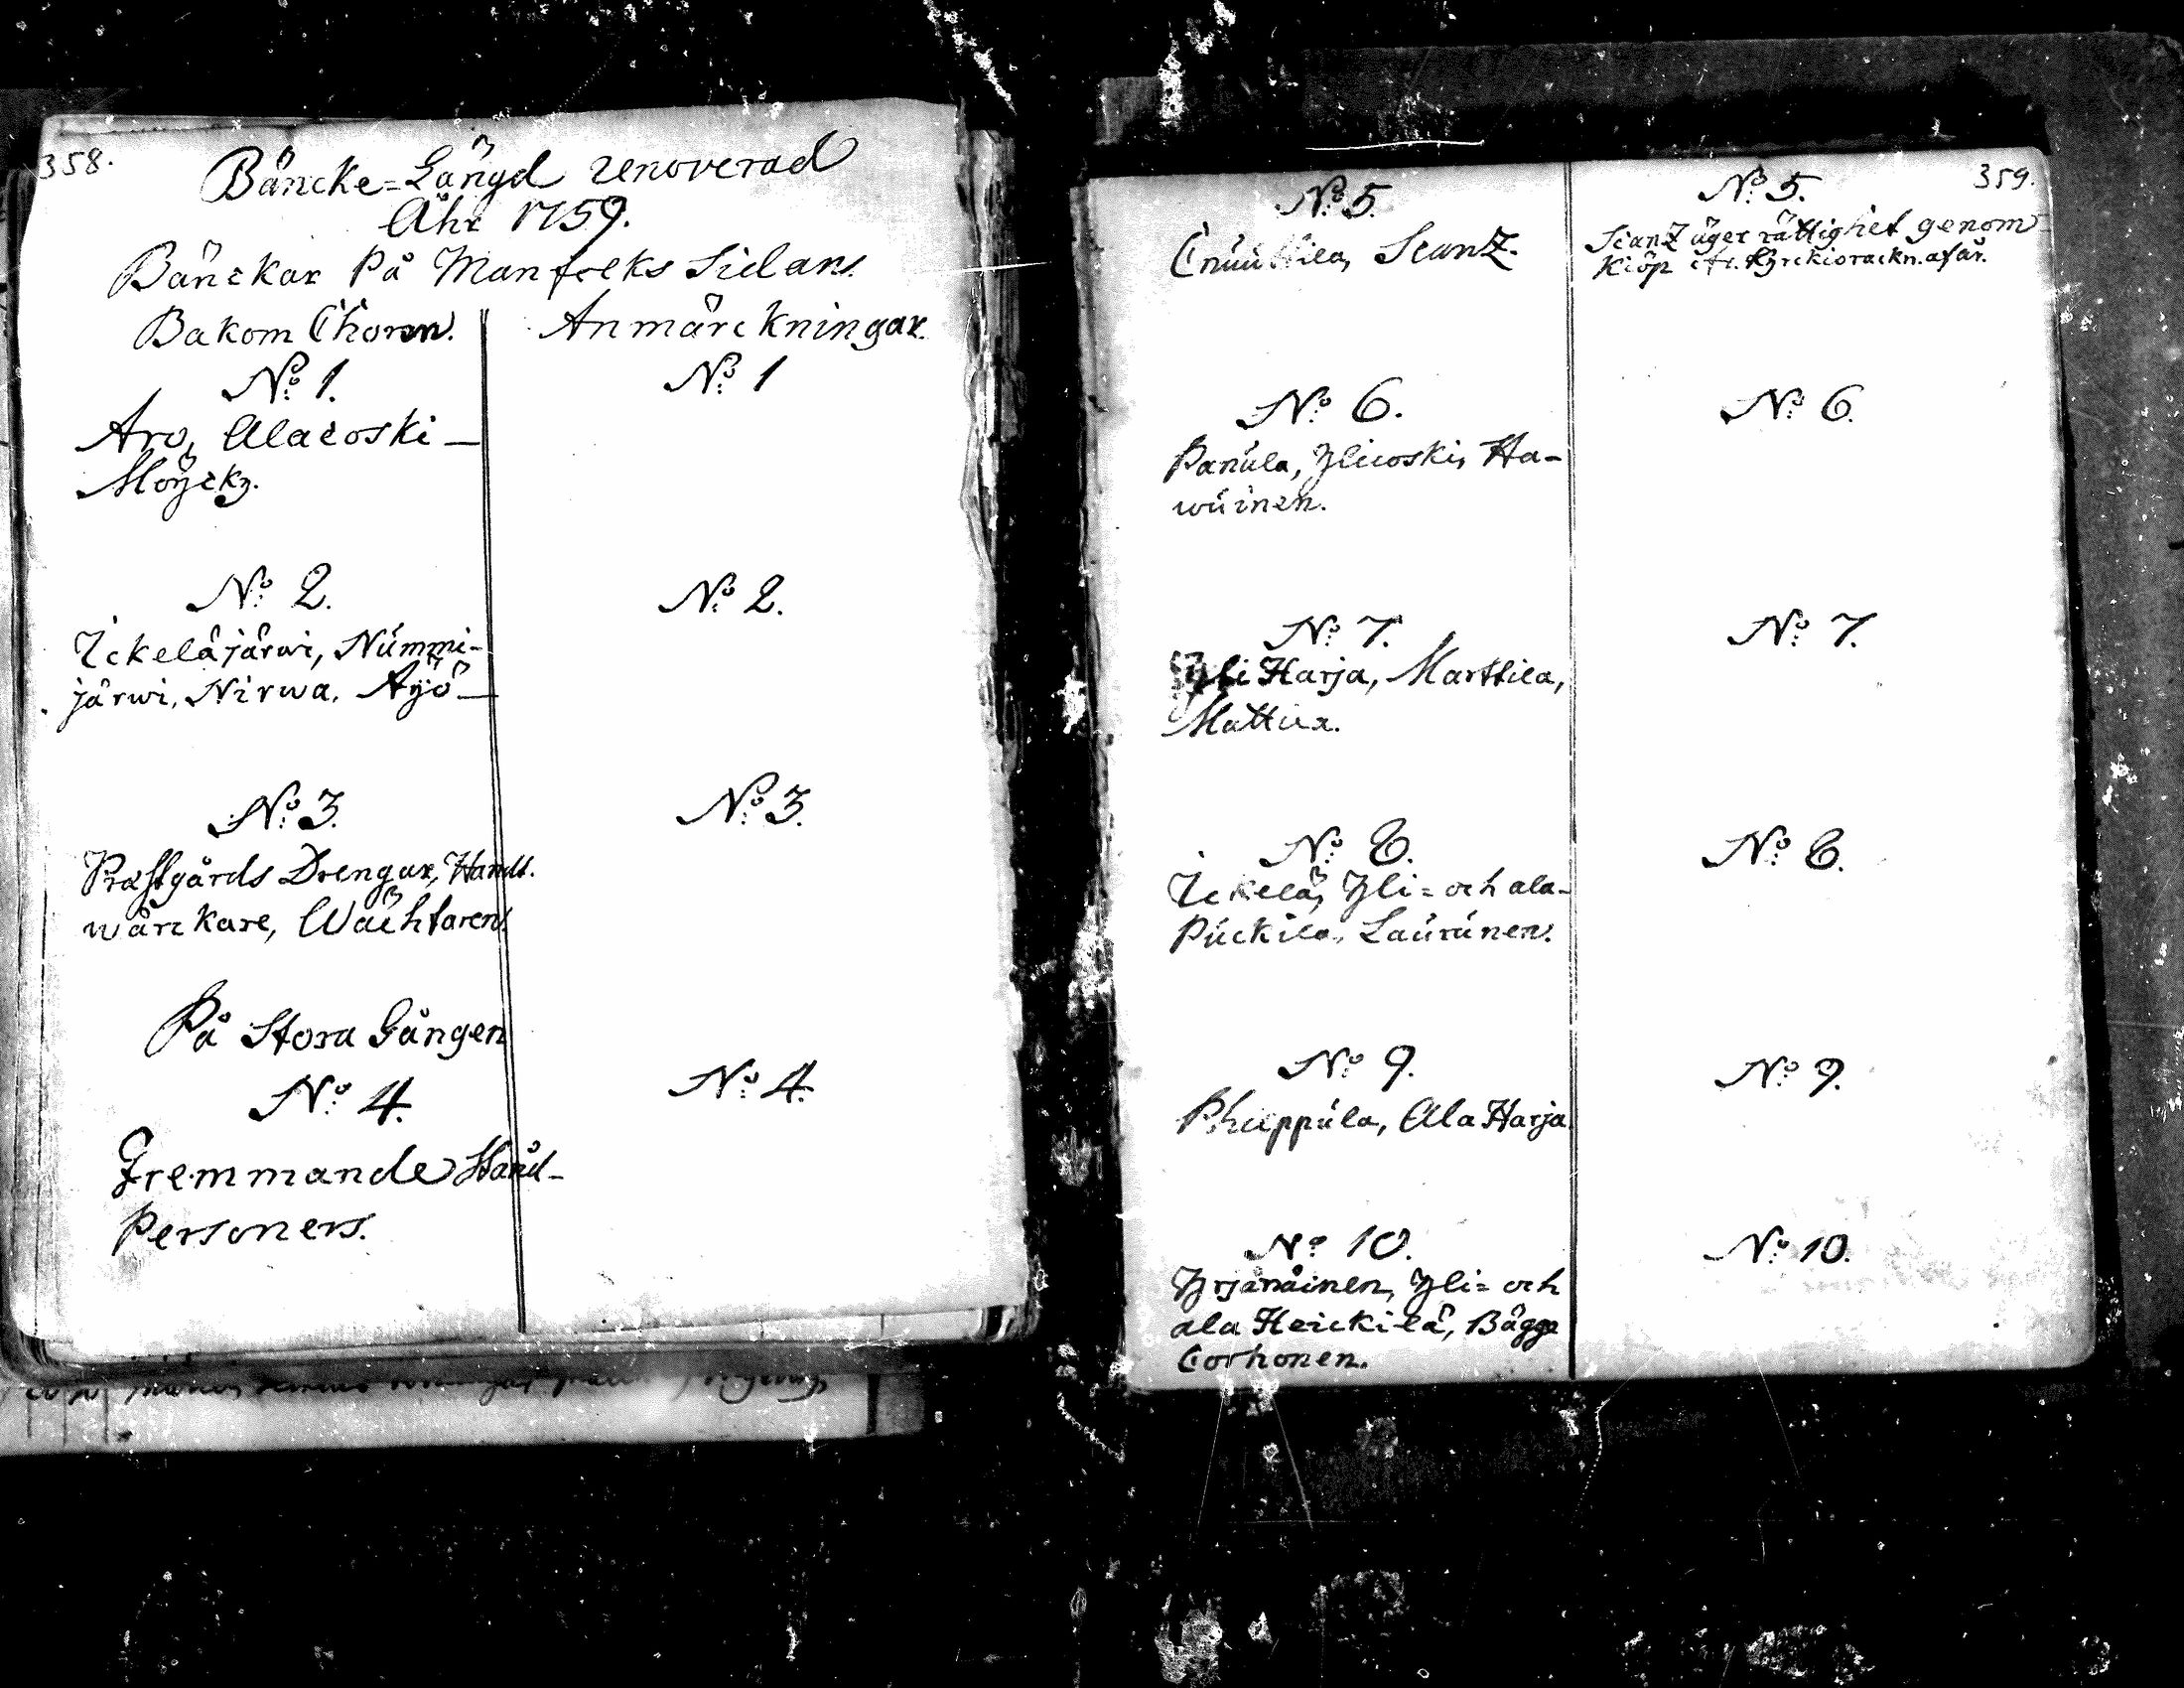 358.
Bäncke-Längd renoverad
Åhr 1759.
Bänckar På Manfolks Sidan.
Bakom Choren.
Anmärckningar.
No 1.
No 1
Aro, Alacoski
Möyrky.
No 2.
No 2.
Ickeläjärwi, Nummi-
järwi, Nirwa, Äyö
No 3.
No 3.
Præstgårds Drengar, Handt-
wärckare, Wächtaren.
På Stora Gången
No 4.
No 4.
Fremmande Stånd-
Personer.
359.
No 5.
No 5.
Cnuuttila, Scantz.
Scantz äger rättighet genom
Kiöp
No 6.
No 6.
Panula, Ylicoski, Ha-
wuinen.
No 7.
No 7.
Yli Harja, Marttila,
Mattila.
No 8.
No 8.
Ickelä, Yli= och ala-
Puckila, Laurunen.
No 9.
No 9.
Philppula, Ala Harja.
No 10.
No 10.
Yrjänäinen, Yli= och
ala Heickilä, Bägge
Corhonen.